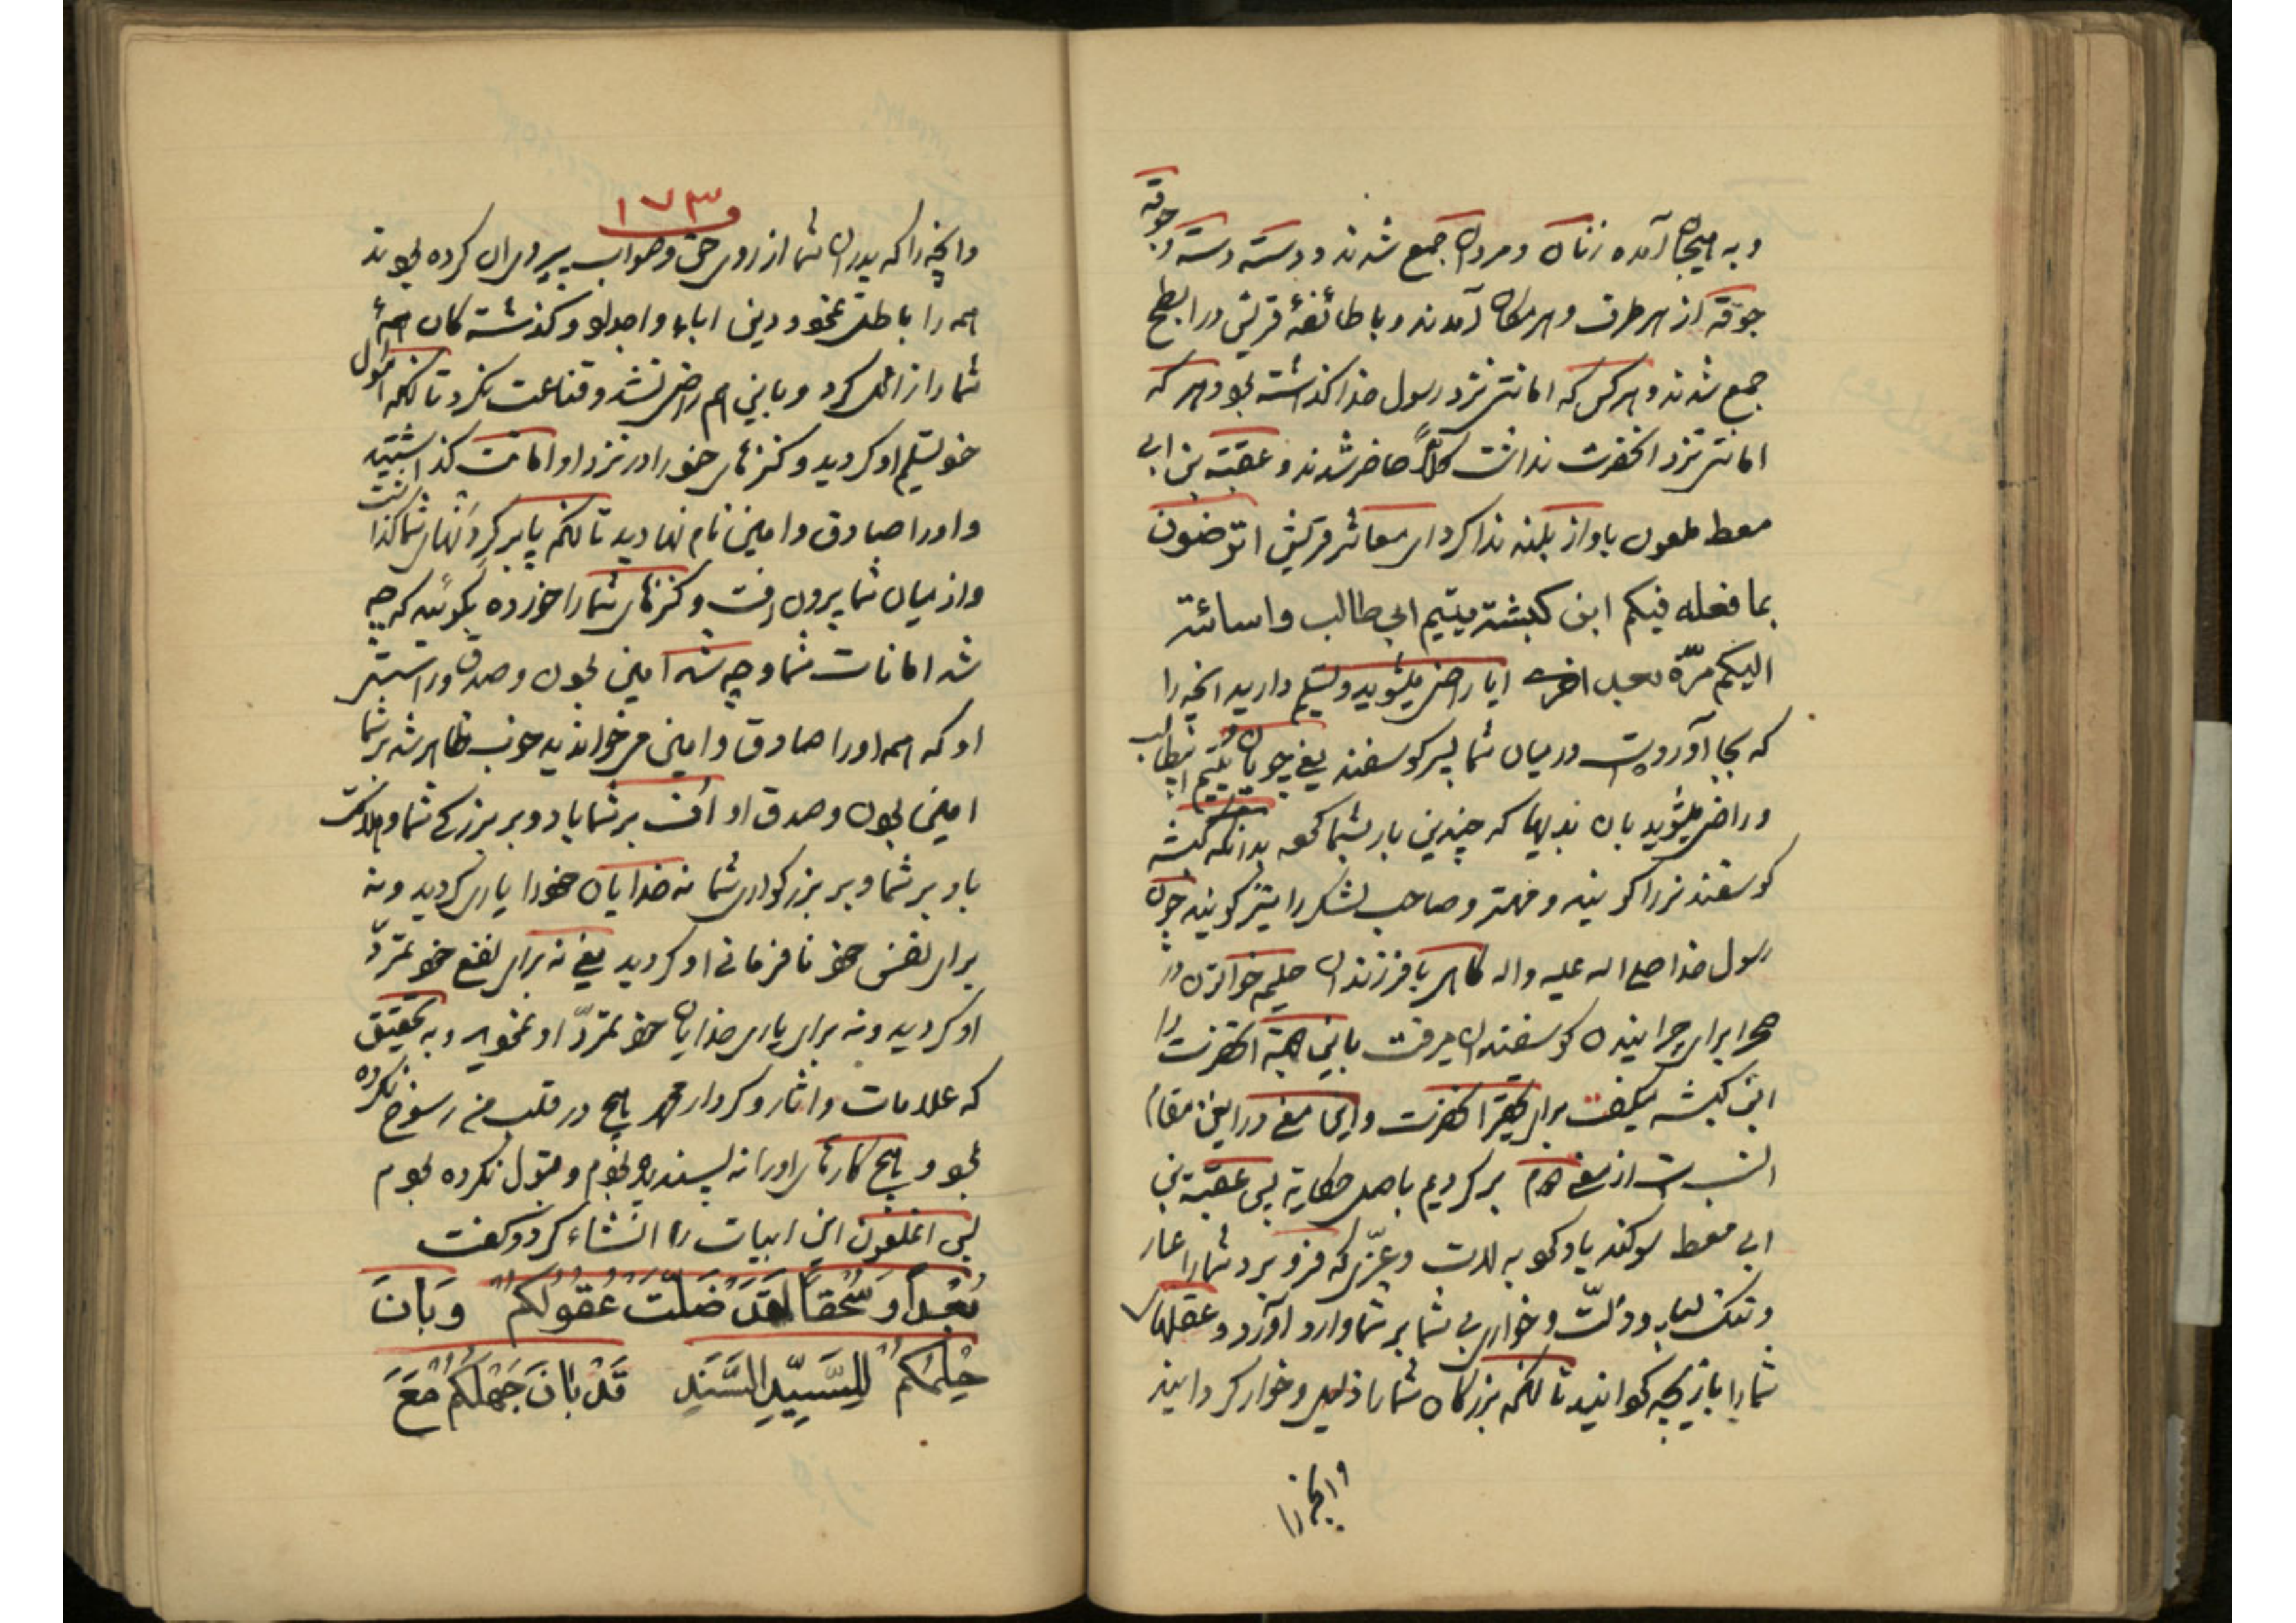 و به هیجان آمده زنان و مردان جمع شدند و دسته دسته و جوقه
جوقه از هر طرف و هر مکان آمدند و با طائفهٔ قریش در ابطح
جمع شدند و هر کس که امانتی نزد رسول خدا گذاشته بود و هر که
امانتی نزد آنحضرت نداشت کلاً حاضر شدند و عقبة بن ابی
معط ملعون باواز بلند ندا کرد ای معاشر قریش اترضون
بما فعله فیکم ابن کبشة یتیم ابی طالب واسائته
الیکم مرّة بعد اخری ایا راضی میشوید و تسلیم دارید انچه را
که بجا آورده است در میان شما پسر کوسفند یعنی چوپان و یتیم ابیطالب
و راضی میشوید بان بدیها که چندین بار بشما کرده بدانکه کبشه
کوسفند نر را کویند و مهتر و صاحب لشکر را نیز کویند چون
رسول خدا صلی اله علیه واله کاهی با فرزندان حلیمه خواتون در
صحرا برای چرانیدن کوسفندان میرفت باین جهة آنحضرت را
ابن کبشه میکفت برای تحقیر آنحضرت و این معنی در این مقام
انسب است از معنی دوم بر کردیم باصل حکایة پس عقبة بن
ابی معط سوکند یاد کرد به لات و عزّی که فرو برد شما را عار
و ننک بسیار و ذلّت و خواری بی شما بر شما وارد آورد و عقلهای
شما را بازیچه کردانید تا انکه بزرکان شما را ذلیل و خوار کردانید
وانچه را
۱۷۳
وانچه را که پدران شما از روی حق و صواب پیروی ان کرده بودند
همه را باطل نمود و دین اباء و اجداد و کذشته کان همهٔ
شما را زائل کرد و باین هم راضی نشد و قناعت نکرد تا انکه اموال
خود تسلیم او کردید و کنزهای خود را در نزد او امانت کذاشتید
و او را صادق و امین نام نهادید تا انکه پا بر کردنهای شما کذاشت
و از میان شما بیرون رفت و کنزهای شما را خورده بکوئید که چه
شد امانات شما و چه شد امین بودن و صدق و راستی
او که همه او را صادق و امین میخواندید خوب ظاهر شد بر شما
امین بودن و صدق او اُف بر شما باد و بر بزرکی شما و هلاکت
باد بر شما و بر بزرکواری شما نه خدایان خود را یاری کردید و نه
برای نفس خود نافرمانی او کردید یعنی نه برای نفع خود تمرّد
او کردید و نه برای یاری خدایان خود تمرّد او نمودید و به تحقیق
که علامات و اثار و کردار محمد هیچ در قلب من رسوخ نکرده
بود و هیچ کارهای او را نه پسندیده بودم و قبول نکرده بودم
پس انملعون این ابیات را انشاء کرد و کفت
بُعْداً وَسُحْقاً لَقَدْ ضَلَّتْ عُقُولُکُمُ وَبَانَ
حِلْمُکُمُ لِلسَّیِّدِ السَّنَدِ قَدْ بٰانَ جَهْلُکُمُ مَعَ